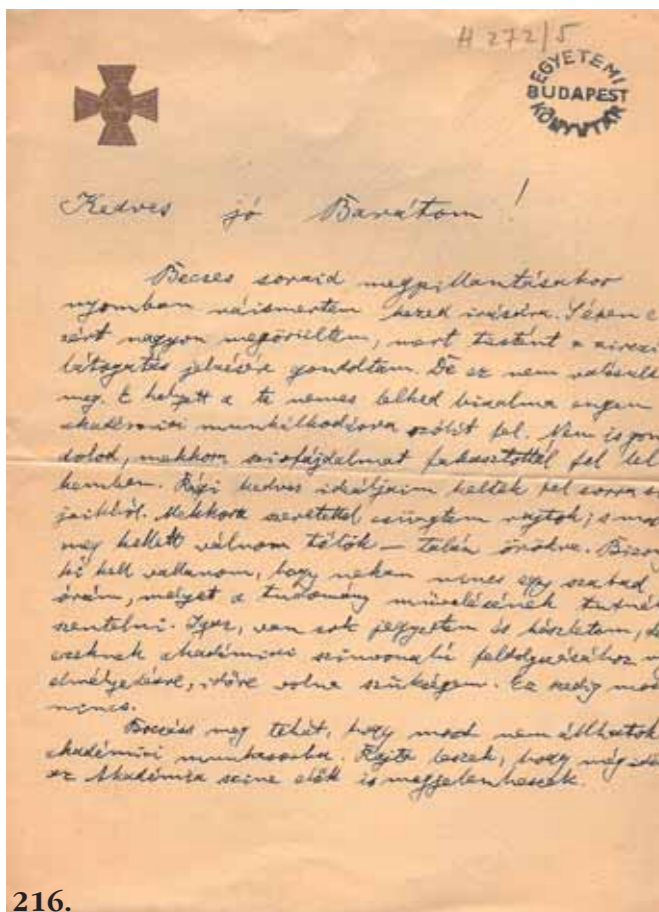 H 272/5
EGYETEMI
BUDAPEST
KÖNYVTÁR
Kedves jó Barátom!
Becses soraid megpillantásakor
nyomban ráismertem kezed írására.
zért nagyon megörültem, mert testént a zirczi
látogatás jelzésére gondoltam. De ez nem valósult
meg. E helyett a te nemes lelked bizalma engem
akadémiai munkálkodásra szólít fel. Nem is gon
dolod, mekkora szivfájdalmat fakasztottál fel lel
kemben. Régi kedves ideáljaim keltek fel sorra
jaikból. Mekkora szeretettel csüngtem rajtok; s
meg kellett válnom tőlök — talán örökre. Bizony
ki kell vallanom, hogy nekem nincs egy szabad
órám, melyet a tudomány művelésének tudnék
szentelni. Igaz, van sok jegyzetem és készletem,
ezeknek akadémiai szinvonalú feldolgozásához
elmélyedésre, időre volna szükségem. Ez pedig most
nincs.
Bocsáss meg tehát, hogy most nem állhatok
akadémiai munkasorba. Rajta leszek, hogy még
az Akadémia szine előtt is megjelenhessek.
216.